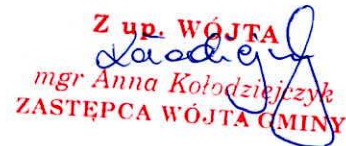 Z up. WÓJTA
mgr Anna Kołodziejczyk
ZASTĘPCA WÓJTA GMINY